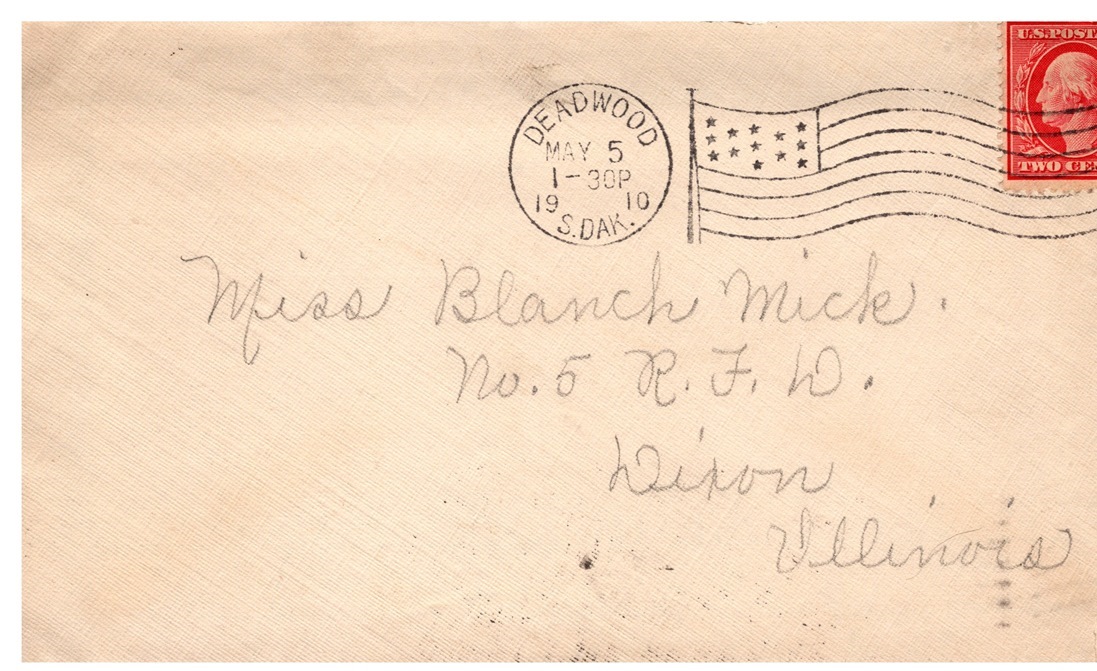 U.S. POST
TWO CE
DEADWOOD
MAY 5
1-30P
19 10
S.DAK.
Miss Blanch Mick.
No. 5 R. F. D.
Dixon
Illinois